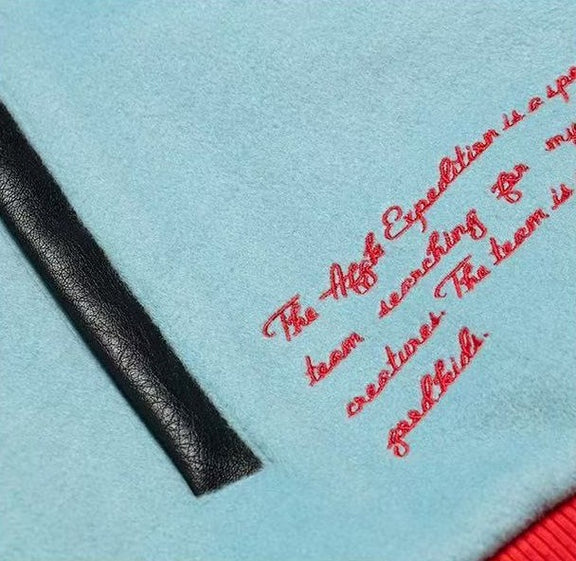 The Affxk Expedition is a spe
team searching for my
creatures. The team is
goodkids.